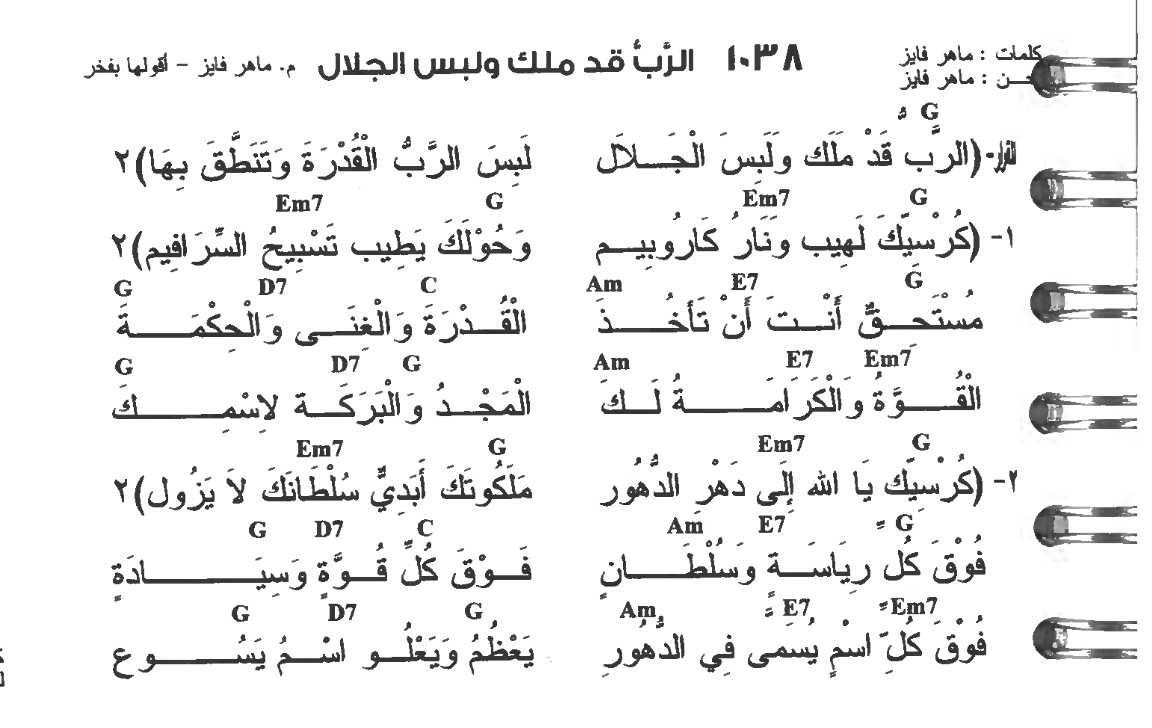 كلمات : ماهر فايز
١٠٣٨ الرَّبُّ قد ملك ولبس الجلال م. ماهر فايز - أقولها بفخر
ـحـن : ماهر فايز
G
القرار-(الرَّب قَدْ مَلَك ولَبِسَ الْجَـلَال لَبِسَ الرَّبُّ الْقُدْرَةَ وَتَنَطَّقَ بِهَا)٢
G Em7 G Em7
١- (كُرْسِيّكَ لَهِيب ونَارُ كَارُوبِيـم وَحُوْلَكَ يَطِيب تَسْبِيحُ السِّرَافِيم)٢
G E7 Am C D7 G
مُسْتَحـقٌّ أَنْـتَ أَنْ تَأخُــذَ الْقُـدْرَةَ وَالْغِنَـى وَالْحِكْمَـــةَ
Em7 E7 Am G D7 G
الْقُــوَّةُ وَالْكَرَامَـــةُ لَـكَ الْمَجْـدُ وَالْبَرَكَـة لاِسْمِــــكَ
G Em7 G Em7
٢- (كُرْسِيّك يَا الله إِلَى دَهْرِ الدُّهُورِ مَلَكُوتَكَ أَبَدِيٌّ سُلْطَانَكَ لاَ يَزُول)٢
G E7 Am C D7 G
فُوْقَ كُل رِيَاسَـةٍ وسُلْطَــانٍ فَـوْقَ كُلِّ قُـوَّةٍ وَسِيَـــــادَةٍ
Em7 E7 Am G D7 G
فُوْقَ كُلِّ اسْمٍ يُسمى فِي الدُّهُورِ يَعْظُمُ وَيَعْلُـو اسْـمُ يَسُـــوع